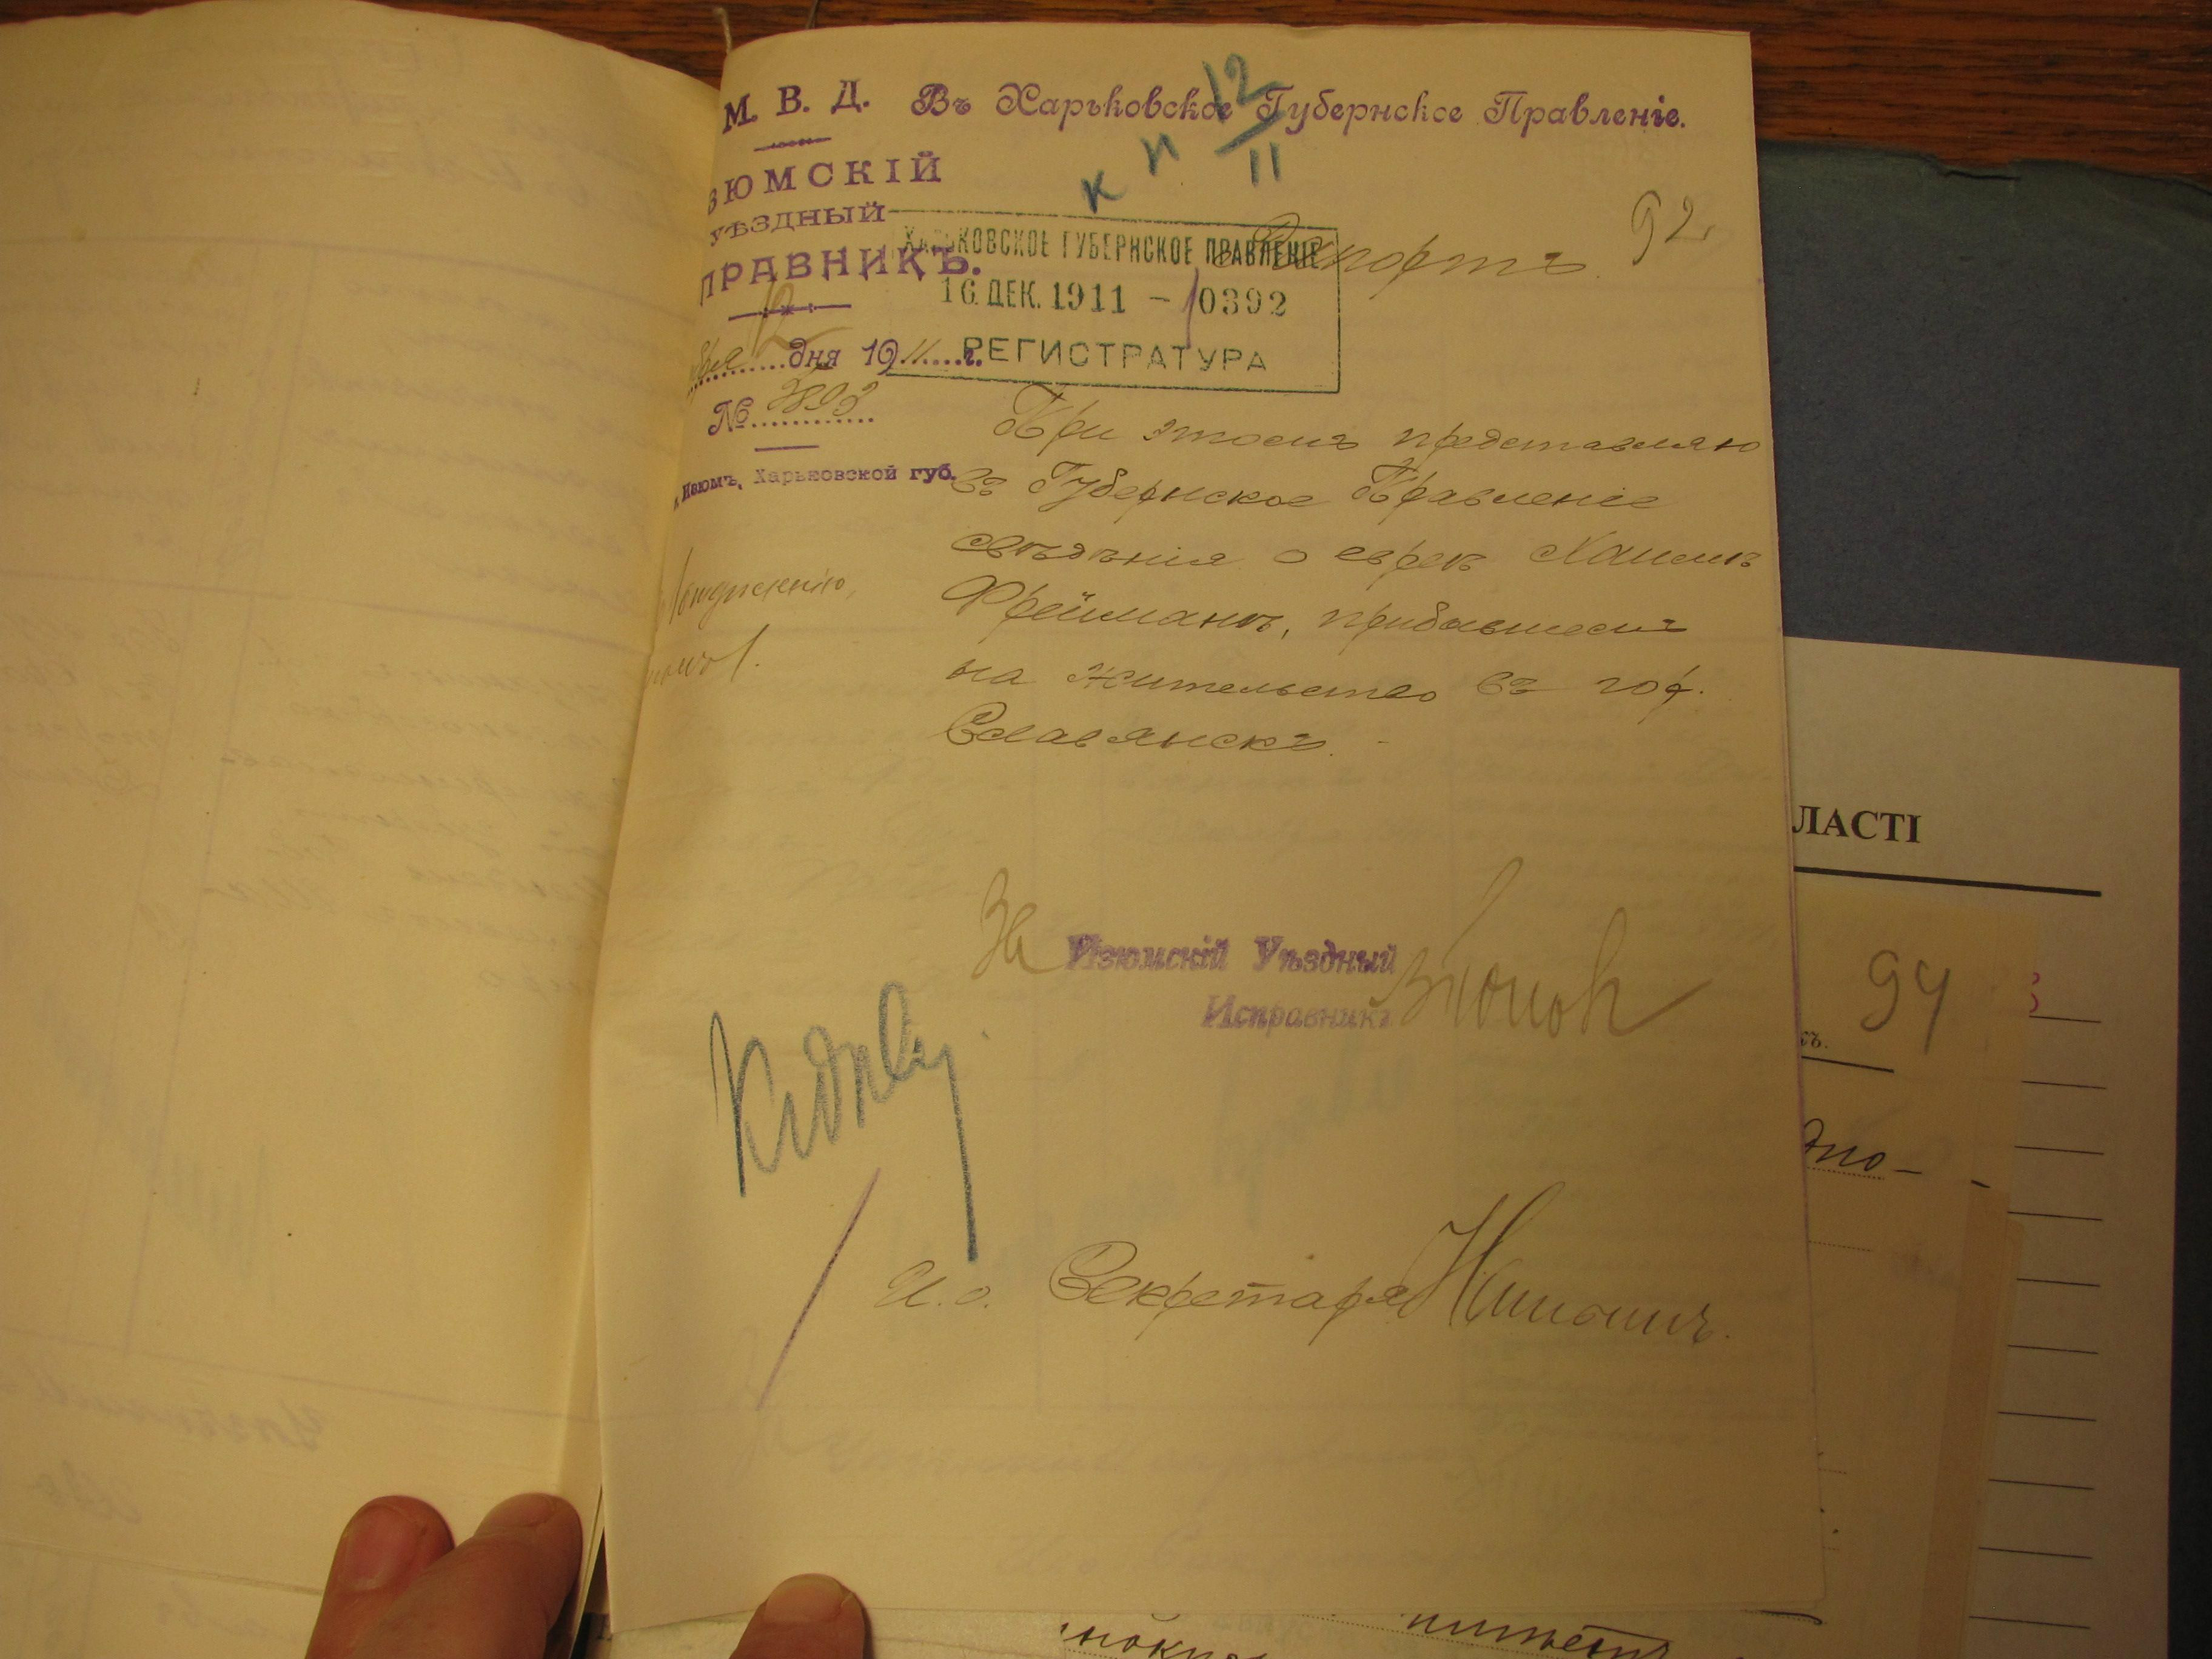 М. В. Д.
Въ Харьковское Губернское Правленіе.
12
11
К Н
ЗЮМСКІЙ
УѢЗДНЫЙ
ПРАВНИКЪ.
12
бря дня 1911 г.
№ 3893
г. Изюмъ, Харьковской губ.
ХАРЬКОВСКОЕ ГУБЕРНСКОЕ ПРАВЛЕНІЕ
16 ДЕК. 1911 - 10392
РЕГИСТРАТУРА
Рапортъ.
92
При этомъ представляю
въ Губернское Правленіе
свѣдѣнія о евреѣ Хаимѣ
Фрейманъ, прибывшемъ
на жительство въ гор.
Славянскъ. -
За Изюмскій Уѣздный
Исправникъ
И. о. Секретаря
ЛАСТІ
94
къ.
дно-